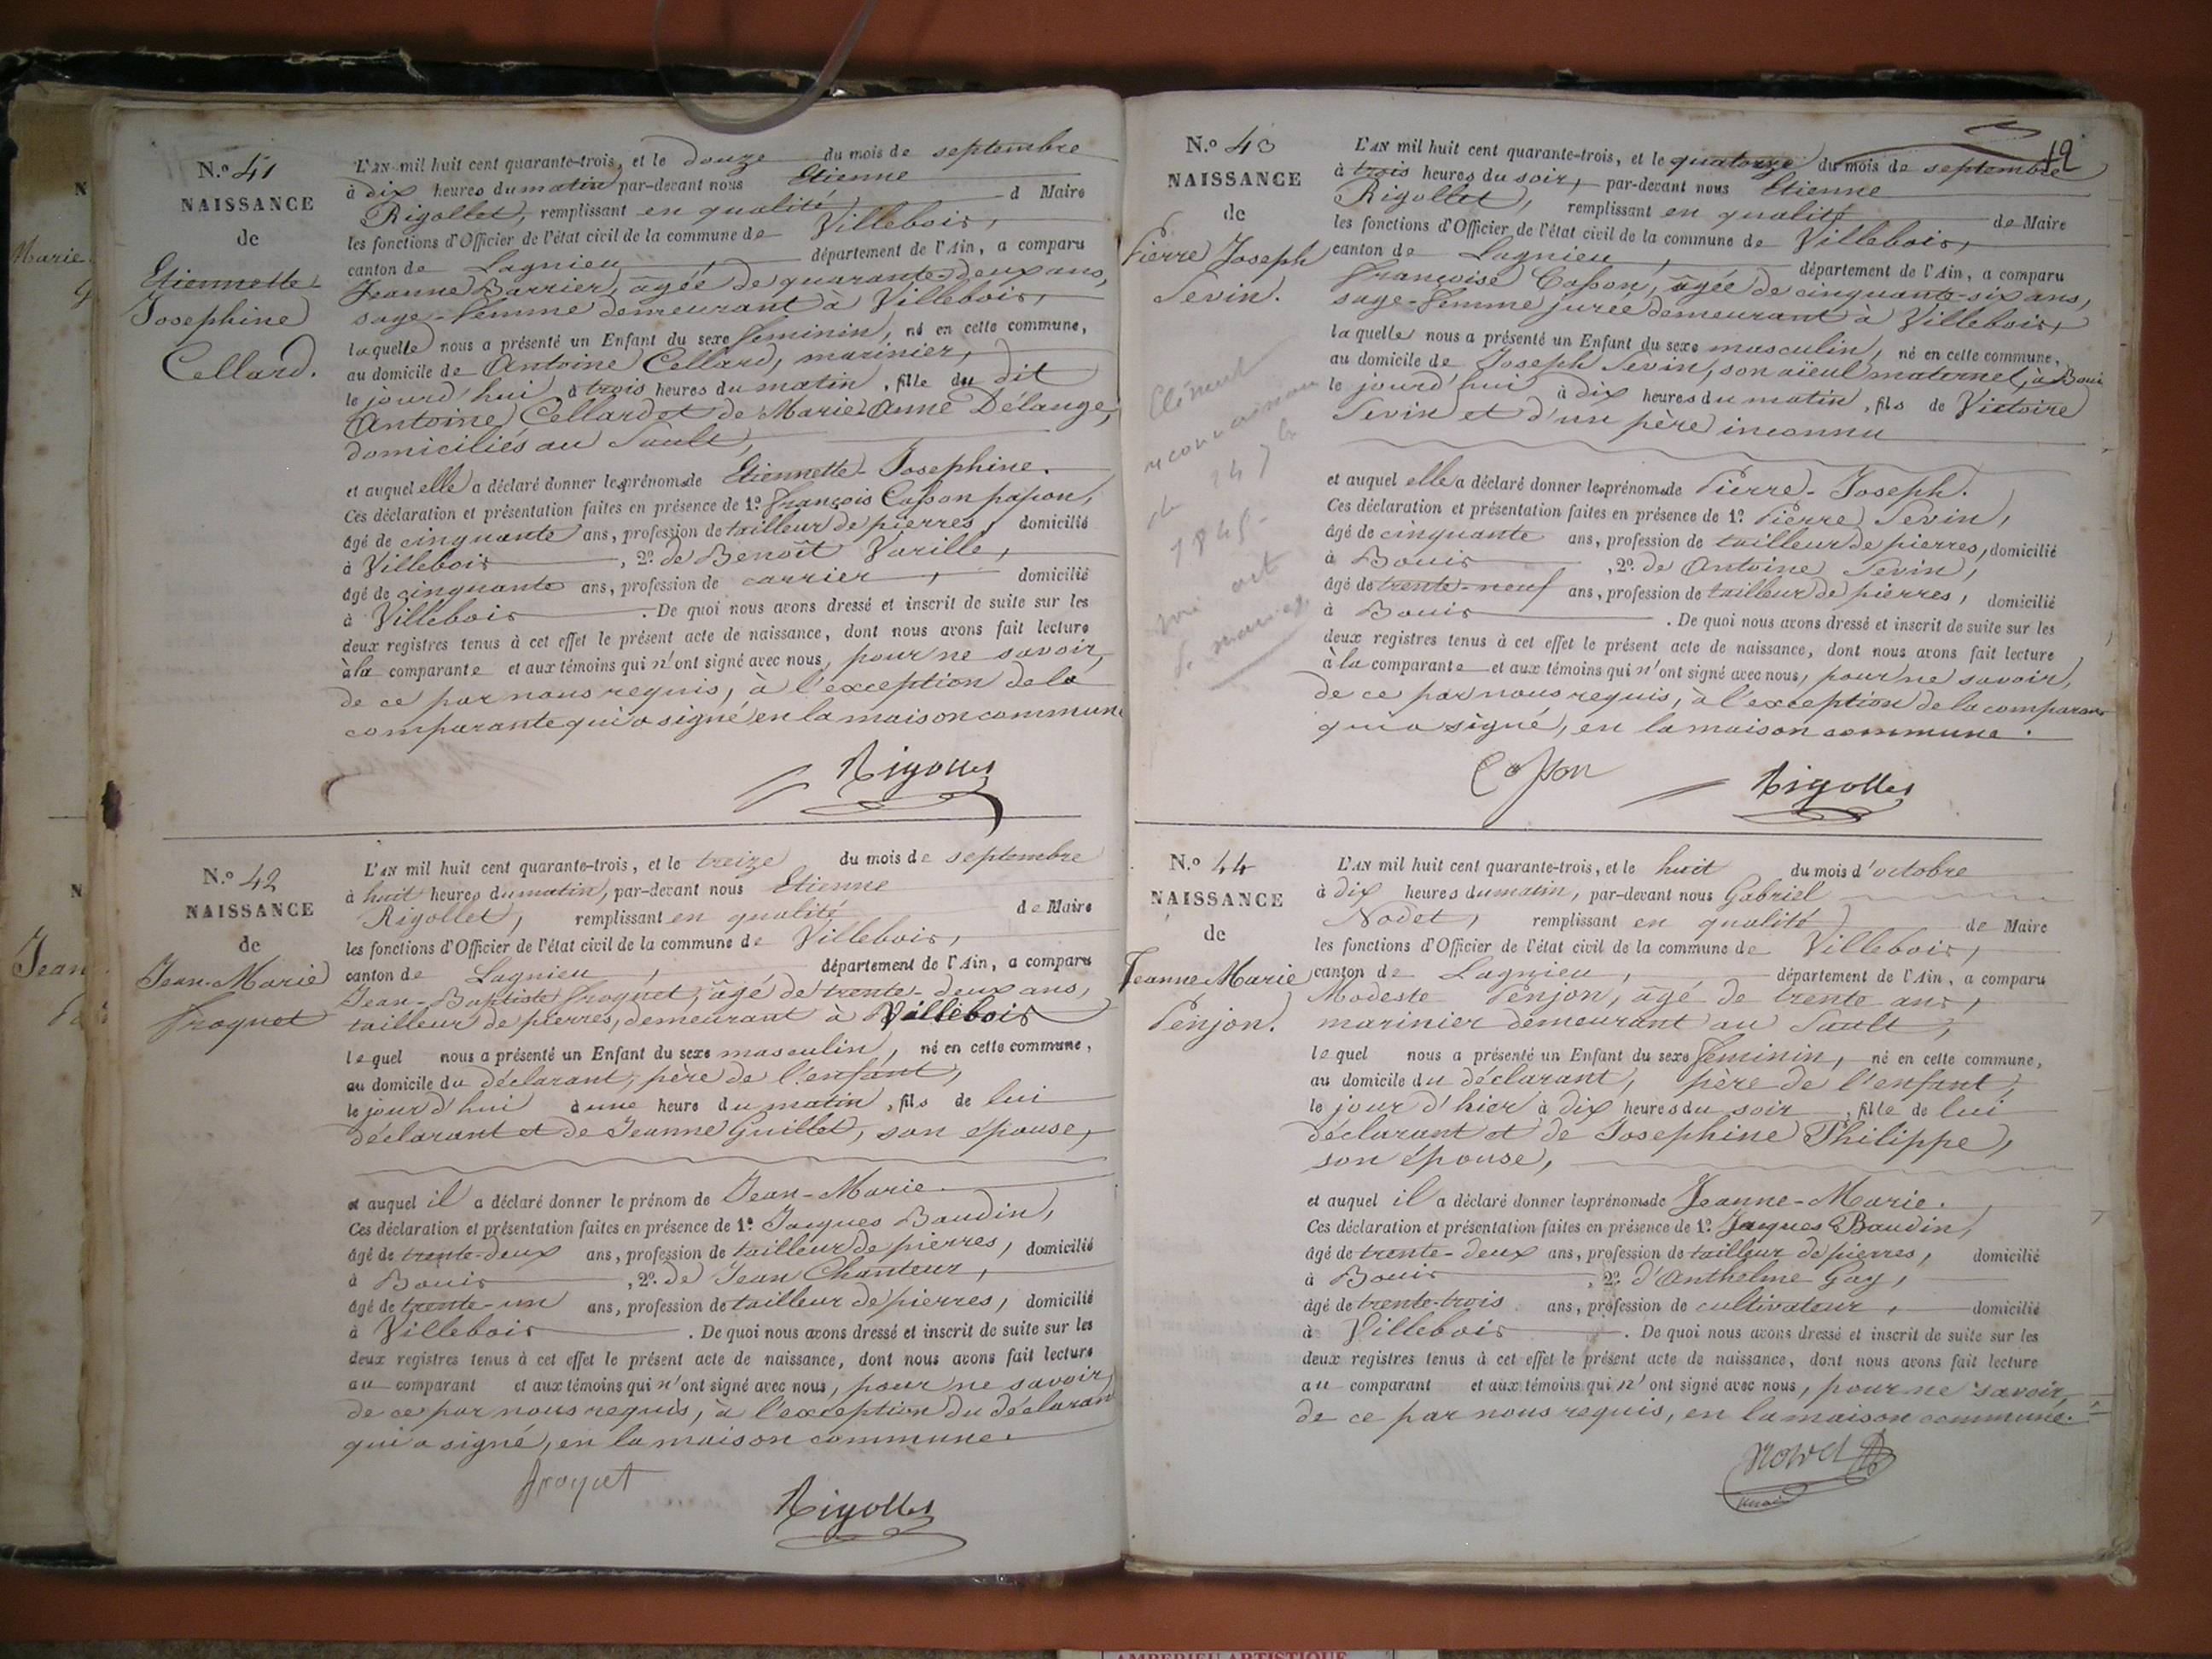 N.o 41
NAISSANCE
de
Etiennette
Josephine
Cellard.
L'AN mil huit cent quarante-trois, et le douze du mois de septembre
à dix heures du matin par-devant nous Etienne
Rigollet, remplissant en qualité d Maire
les fonctions d'Officier de l'état civil de la commune de Villebois,
canton de Lagnieu, département de l'Ain, a comparu
Jeanne Barrier, agée de quarante-deux ans,
sage-femme demeurant à Villebois,
laquelle nous a présenté un Enfant du sexe feminin, né en cette commune,
au domicile de Antoine Cellard, marinier,
le jourd'hui à trois heures du matin, fille du dit
Antoine Cellard et de Marie-Anne Délange,
domiciliés au Sault,
et auquel elle a déclaré donner les prénoms de Etiennette-Josephine.
Ces déclaration et présentation faites en présence de 1.o François Casson papon,
âgé de cinquante ans, profession de tailleur de pierres, domicilié
à Villebois, 2.o de Benoît Varille,
âgé de cinquante ans, profession de carrier, domicilié
à Villebois. De quoi nous avons dressé et inscrit de suite sur les
deux registres tenus à cet effet le présent acte de naissance, dont nous avons fait lecture
à la comparante et aux témoins qui n'ont signé avec nous, pour ne savoir,
de ce par nous requis, à l'exception de la
comparante qui a signé en la maison commune
Rigollet
N.o 42
NAISSANCE
de
Jean-Marie
Froquet
L'AN mil huit cent quarante-trois, et le treize du mois de septembre
à huit heures du matin, par-devant nous Etienne
Rigollet, remplissant en qualité de Maire
les fonctions d'Officier de l'état civil de la commune de Villebois,
canton de Lagnieu, département de l'Ain, a comparu
Jean-Baptiste Froquet, âgé de trente-deux ans,
tailleur de pierres, demeurant à Villebois
lequel nous a présenté un Enfant du sexe masculin, né en cette commune,
au domicile du déclarant, père de l'enfant,
le jour d'hui à une heure du matin, fils de lui
déclarant et de Jeanne Guillet, son épouse,
et auquel il a déclaré donner le prénom de Jean-Marie
Ces déclaration et présentation faites en présence de 1.o Jacques Baudin,
âgé de trente-deux ans, profession de tailleur de pierres, domicilié
à Bouis, 2.o de Jean Chanteur,
âgé de trente-un ans, profession de tailleur de pierres, domicilié
à Villebois. De quoi nous avons dressé et inscrit de suite sur les
deux registres tenus à cet effet le présent acte de naissance, dont nous avons fait lecture
au comparant et aux témoins qui n'ont signé avec nous, pour ne savoir,
de ce par nous requis, à l'exception du déclarant
qui a signé, en la maison commune.
Froquet
Rigollet
12
N.o 43
NAISSANCE
de
Pierre Joseph
Sevin.
L'AN mil huit cent quarante-trois, et le quatorze du mois de septembre
à trois heures du soir, par-devant nous Etienne
Rigollet, remplissant en qualité de Maire
les fonctions d'Officier de l'état civil de la commune de Villebois,
canton de Lagnieu, département de l'Ain, a comparu
Françoise Casson, âgée de cinquante-six ans,
sage-femme jurée demeurant à Villebois,
laquelle nous a présenté un Enfant du sexe masculin, né en cette commune,
au domicile de Joseph Sevin, son aïeul maternel, à Bouis
le jourd'hui à dix heures du matin, fils de Victoire
Sevin et d'un père inconnu
et auquel elle a déclaré donner les prénoms de Pierre-Joseph.
Ces déclaration et présentation faites en présence de 1.o Pierre Sevin,
âgé de cinquante ans, profession de tailleur de pierres, domicilié
à Bouis, 2.o de Antoine Sevin,
âgé de trente-neuf ans, profession de tailleur de pierres, domicilié
à Bouis. De quoi nous avons dressé et inscrit de suite sur les
deux registres tenus à cet effet le présent acte de naissance, dont nous avons fait lecture
à la comparante et aux témoins qui n'ont signé avec nous, pour ne savoir,
de ce par nous requis, à l'exception de la comparante
qui a signé, en la maison commune.
Casson
Rigollet
1845
N.o 44
NAISSANCE
de
Jeanne Marie
Penjon.
L'AN mil huit cent quarante-trois, et le huit du mois d'octobre
à dix heures du matin, par-devant nous Gabriel
Nodet, remplissant en qualité de Maire
les fonctions d'Officier de l'état civil de la commune de Villebois,
canton de Lagnieu, département de l'Ain, a comparu
Modeste Penjon, âgé de trente ans,
marinier demeurant au Sault,
lequel nous a présenté un Enfant du sexe feminin, né en cette commune,
au domicile du déclarant, père de l'enfant,
le jour d'hier à dix heures du soir, fille de lui
déclarant et de Josephine Philippe,
son épouse,
et auquel il a déclaré donner les prénoms de Jeanne-Marie.
Ces déclaration et présentation faites en présence de 1.o Jacques Baudin,
âgé de trente-deux ans, profession de tailleur de pierres, domicilié
à Bouis, 2.o d'Anthelme Gay,
âgé de trente-trois ans, profession de cultivateur, domicilié
à Villebois. De quoi nous avons dressé et inscrit de suite sur les
deux registres tenus à cet effet le présent acte de naissance, dont nous avons fait lecture
au comparant et aux témoins qui n'ont signé avec nous, pour ne savoir,
de ce par nous requis, en la maison commune.
AMBERIEU ARTISTIQUE